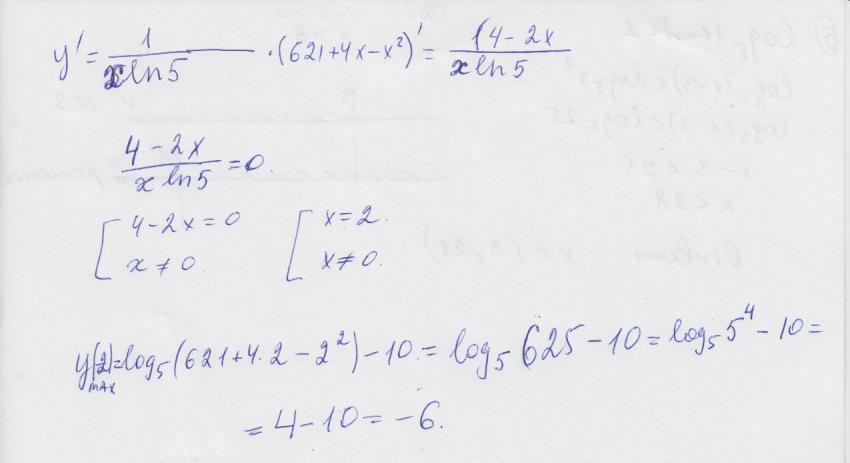 y' = 1/(x ln 5) · (621+4x−x²)' = (4−2x)/(x ln 5)
(4−2x)/(x ln 5) = 0.
[ 4−2x=0 [ x=2.
x≠0 x≠0.
y(2)=log₅(621+4·2−2²)−10 = log₅ 625−10 = log₅5⁴−10=
MAX
= 4−10 = −6.